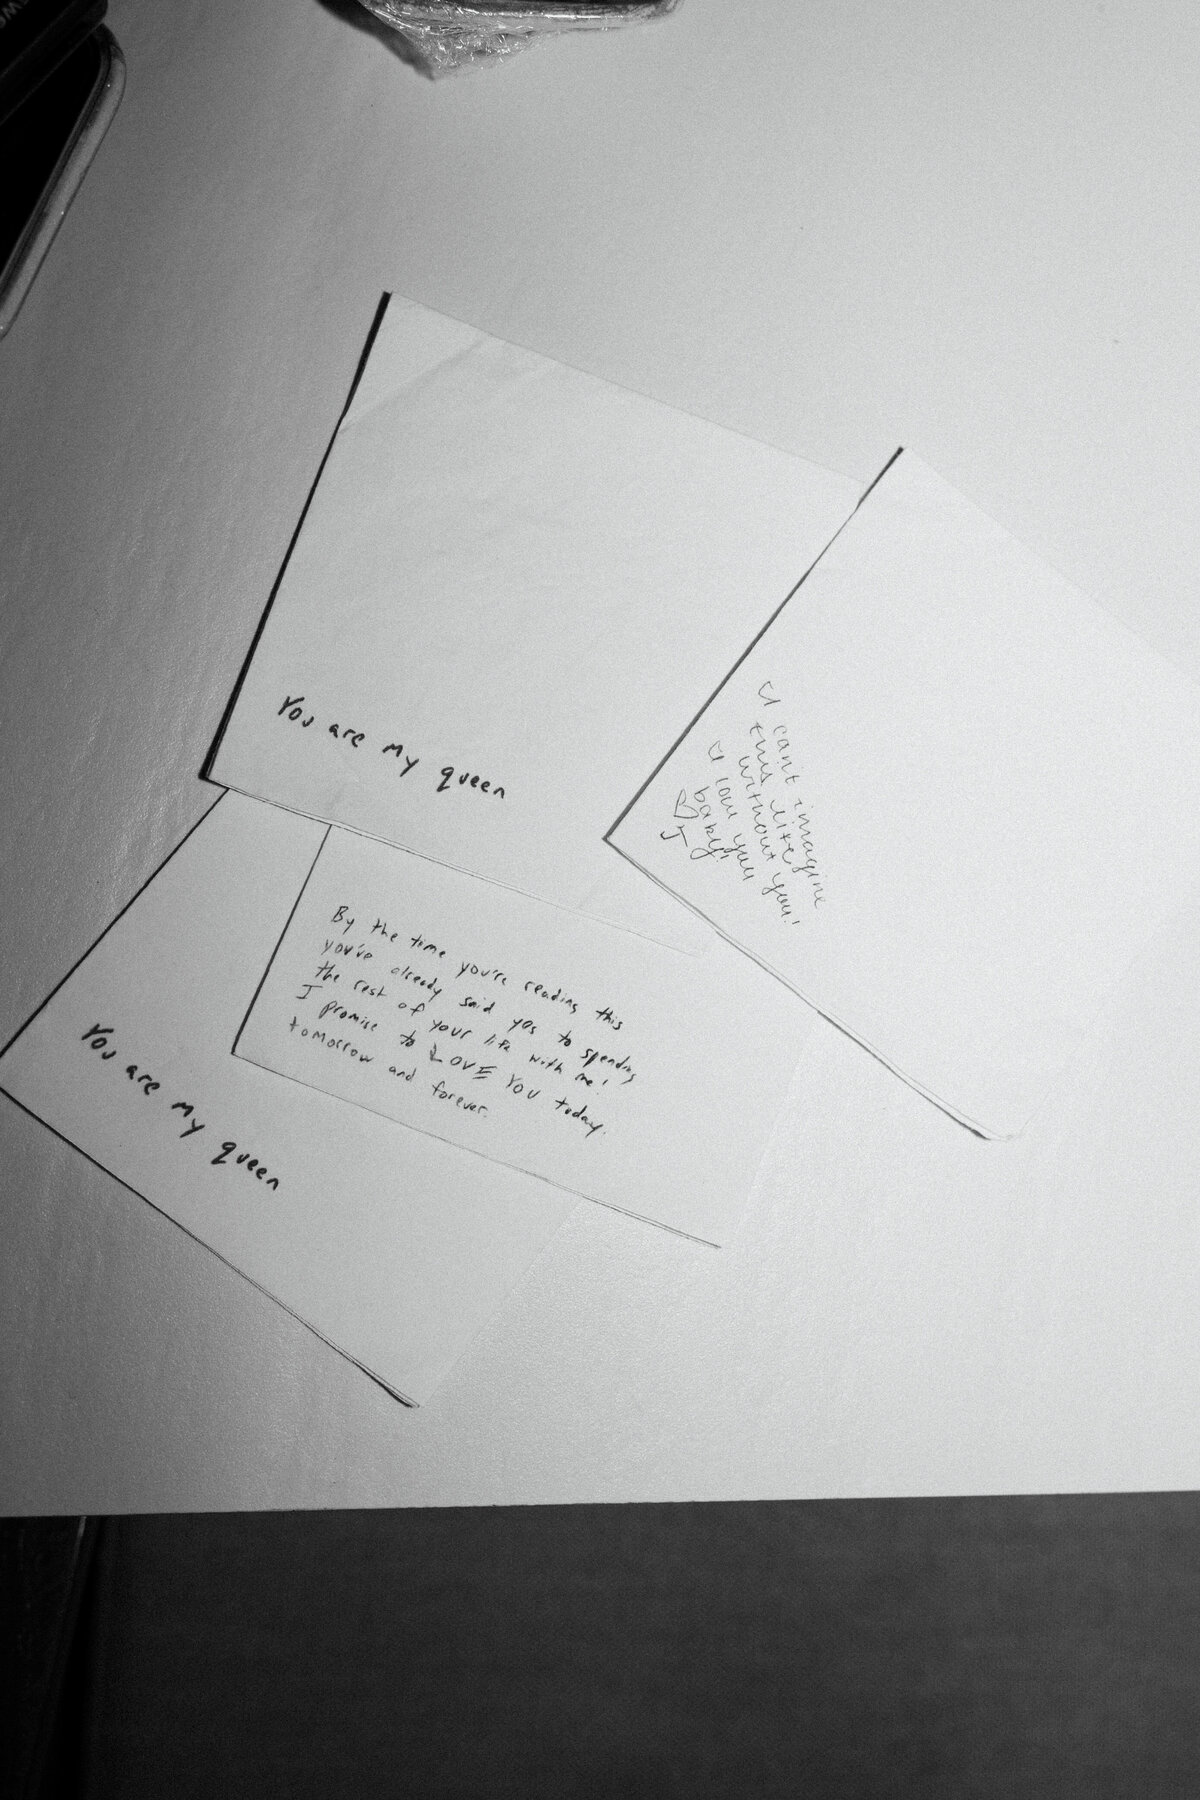 You are my queen
I can't imagine
this life
without you!
I love you
baby!
J
By the time you're reading this
you've already said yes to spending
the rest of your life with me!
I promise to LOVE YOU today.
tomorrow and forever.
You are my queen